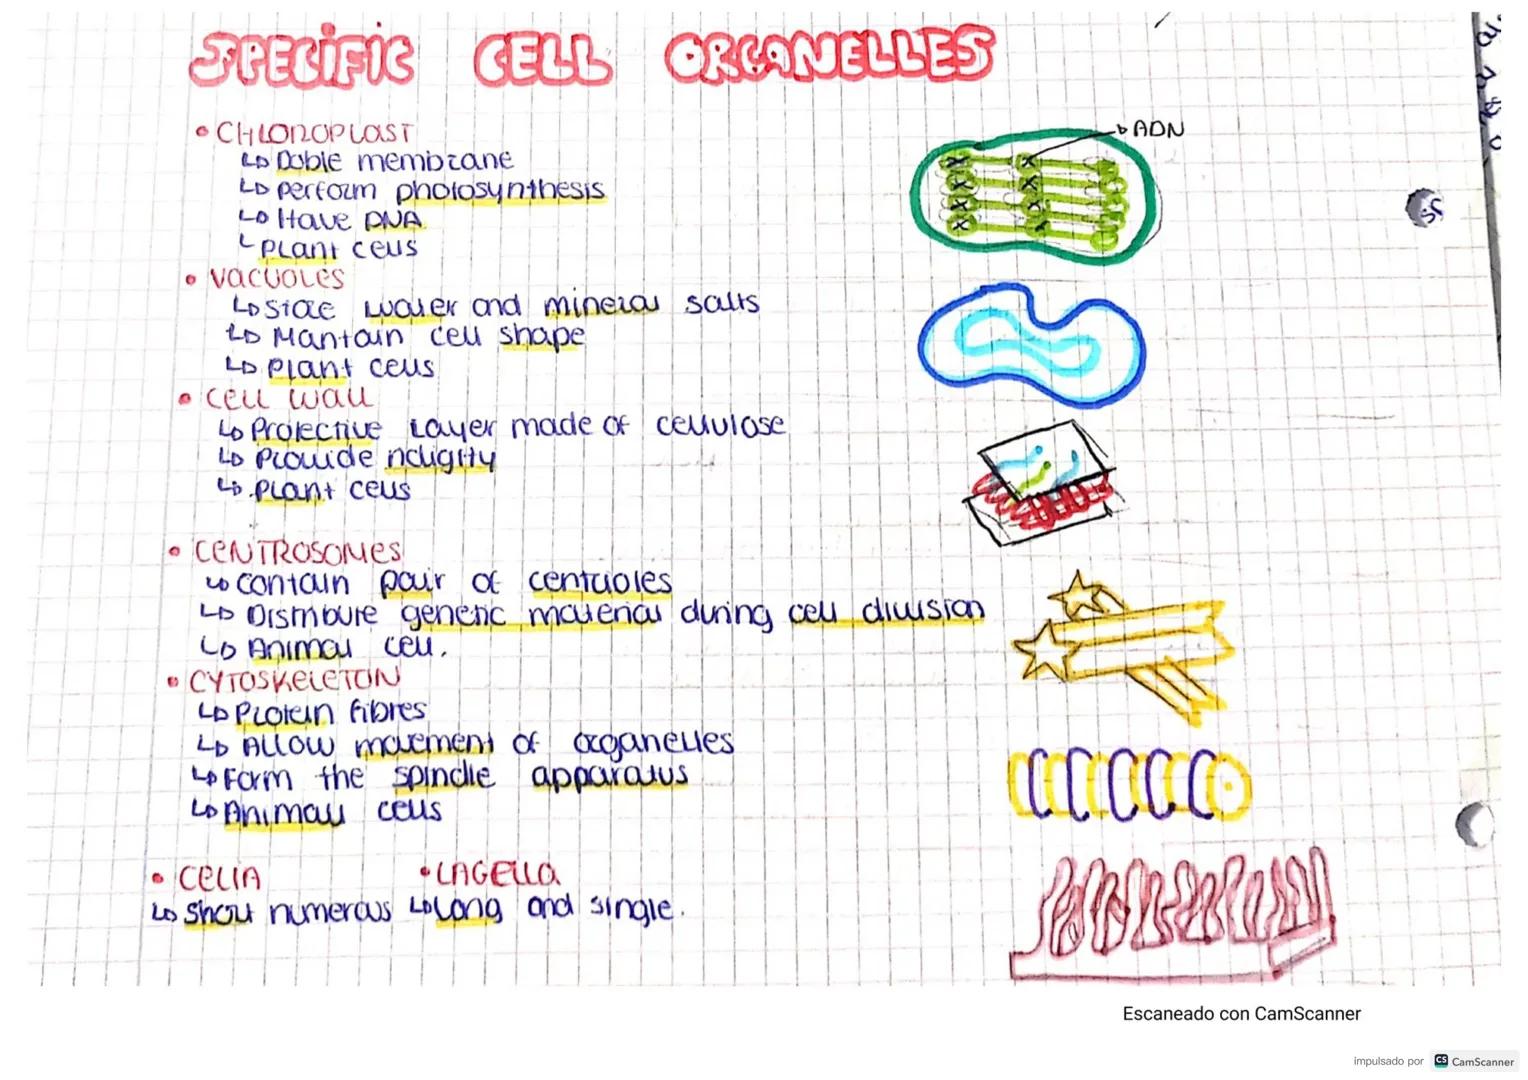 SPECIFIC CELL ORGANELLES
• CHLOROPLAST
↳ Doble membrane
↳ perform photosynthesis
↳ Have DNA
↳ Plant cells
ADN
• VACUOLES
↳ store water and mineral salts
↳ Mantain cell shape
↳ Plant cells
• Cell wall
↳ Protective Layer made of cellulose
↳ Provide
↳ Plant cells
• CENTROSOMES
↳ contain pair of centrioles
↳ Distribute genetic material during cell division
↳ Animal cell.
• CYTOSKELETON
↳ Protein fibres
↳ Allow movement of organelles
↳ Form the spindle apparatus
↳ Animall cells
• CELIA • LAGELLA
↳ Short numerous ↳ Long and single.
Escaneado con CamScanner
impulsado por CS CamScanner